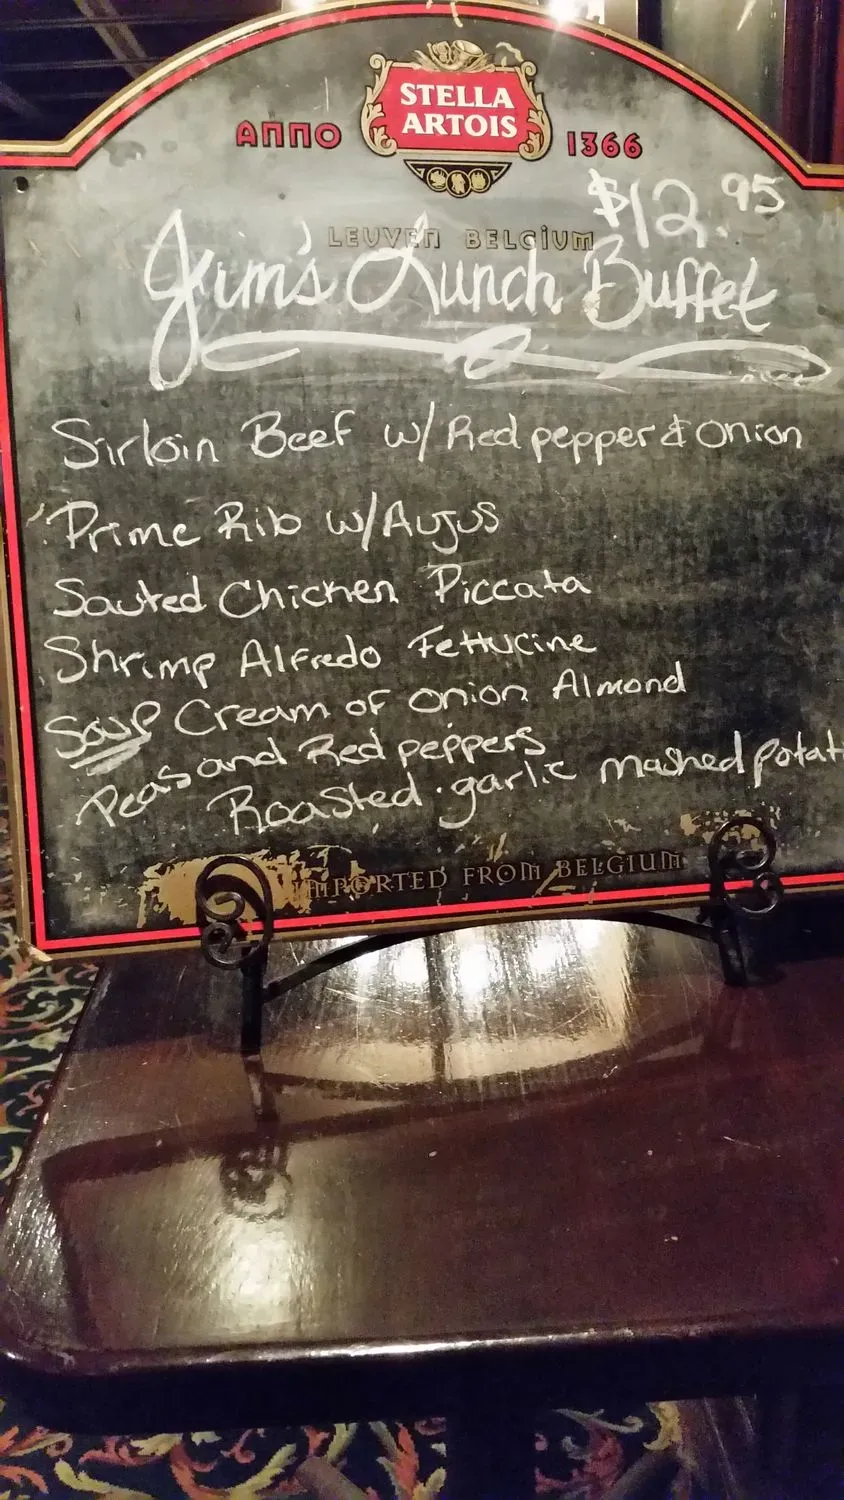 STELLA
ARTOIS
ANNO 1366
$12.95
LEUVEN BELGIUM
Jim's Lunch Buffet
Sirloin Beef w/ Red pepper & onion
Prime Rib w/Aujus
Sauted Chicken Piccata
Shrimp Alfredo Fettucine
Soup Cream of onion Almond
Peas and Red peppers
Roasted garlic mashed potat
IMPORTED FROM BELGIUM